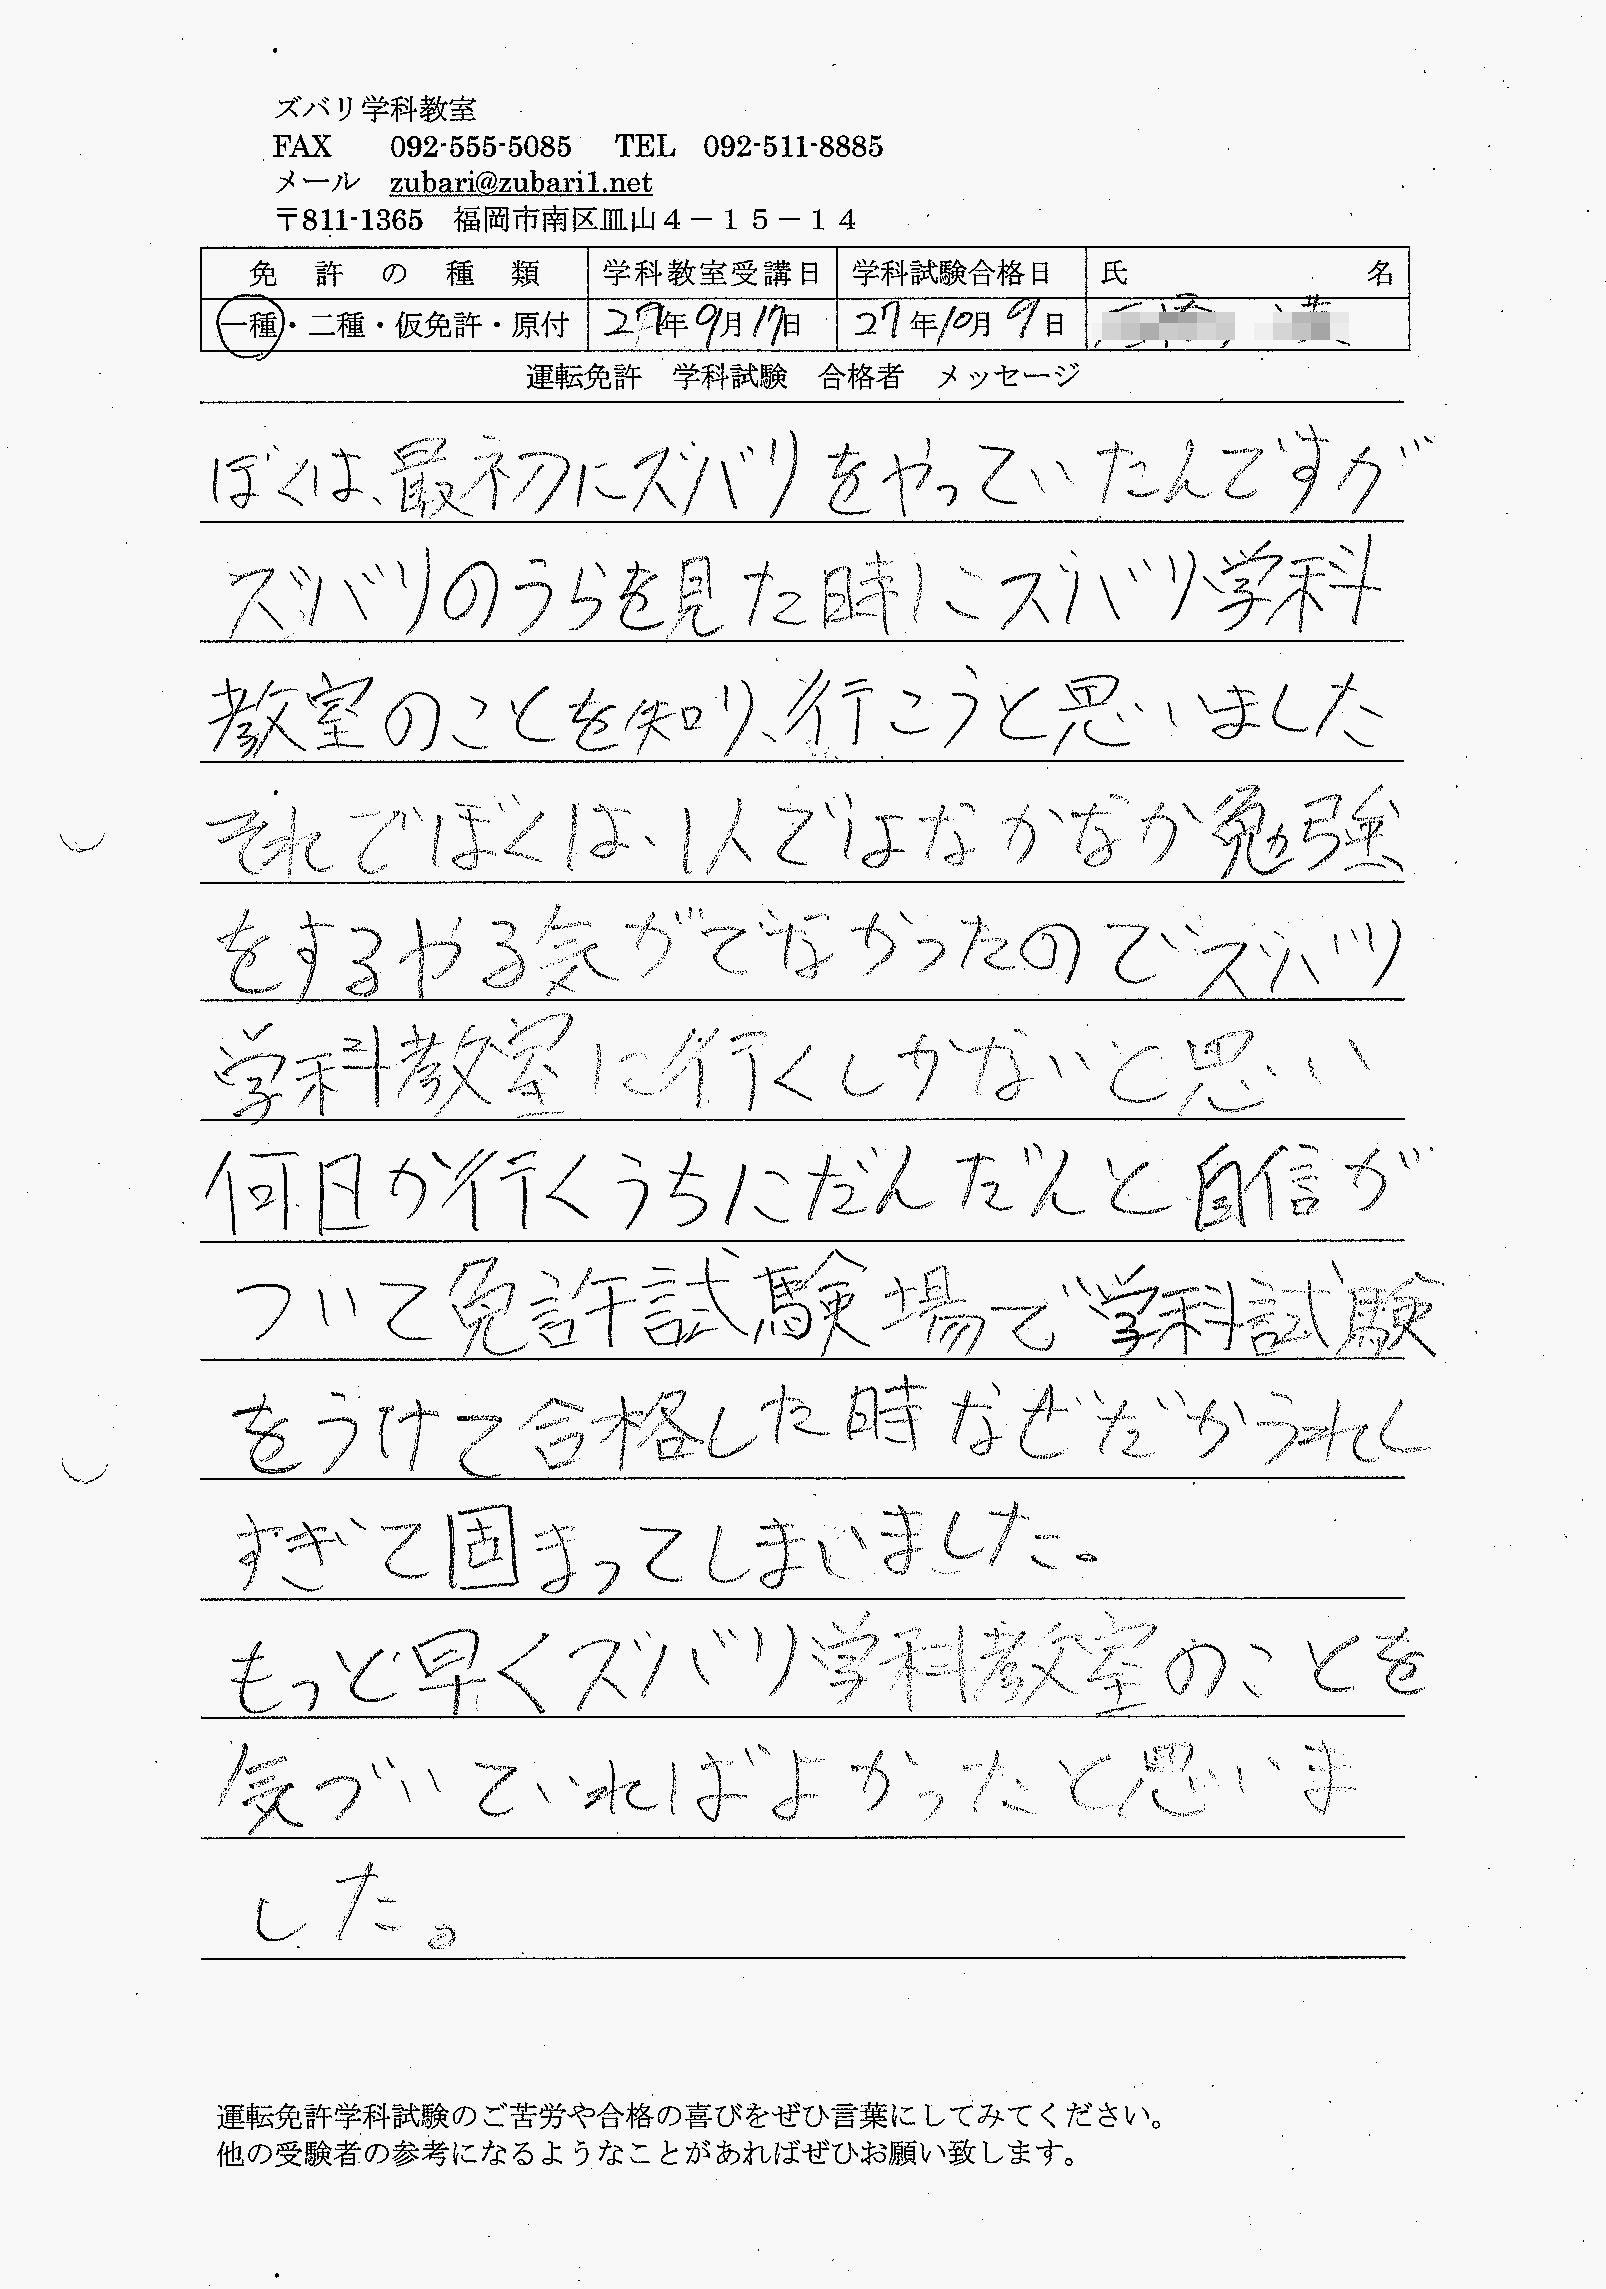 ズバリ学科教室
FAX 092-555-5085 TEL 092-511-8885
メール zubari@zubari1.net
〒811-1365 福岡市南区皿山4－15－14
免許の種類 学科教室受講日 学科試験合格日 氏名
一種・二種・仮免許・原付 27年9月17日 27年10月9日
運転免許 学科試験 合格者 メッセージ
ぼくは、最初にズバリをやっていたんですが
ズバリのうらを見た時にズバリ学科
教室のことを知り、行こうと思いました
それでぼくは、1人ではなかなか勉強
をするやる気がでなかったのでズバリ
学科教室に行くしかないと思い
何日か行くうちにだんだんと自信が
ついて免許試験場で学科試験
をうけて合格した時なぜだかうれし
すぎて固まってしまいました。
もっと早くズバリ学科教室のことを
気づいていればよかったと思いま
した。
運転免許学科試験のご苦労や合格の喜びをぜひ言葉にしてみてください。
他の受験者の参考になるようなことがあればぜひお願い致します。